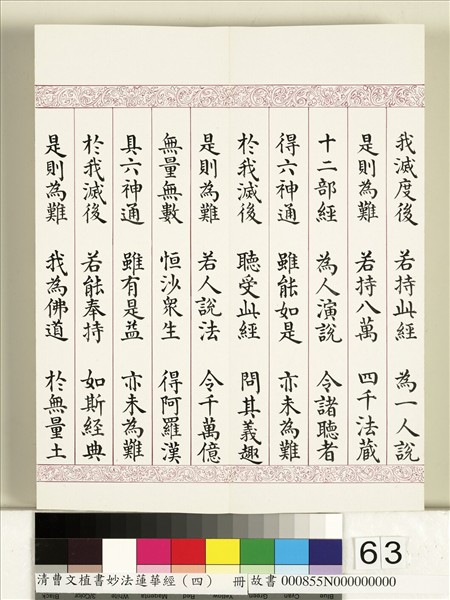 我滅度後 若持此經 為一人說
是則為難 若持八萬 四千法藏
十二部經 為人演說 令諸聽者
得六神通 雖能如是 亦未為難
於我滅後 聽受此經 問其義趣
是則為難 若人說法 令千萬億
無量無數 恒沙眾生 得阿羅漢
具六神通 雖有是益 亦未為難
於我滅後 若能奉持 如斯經典
是則為難 我為佛道 於無量土
63
清曹文植書妙法蓮華經(四) 冊 故書 000855N000000000